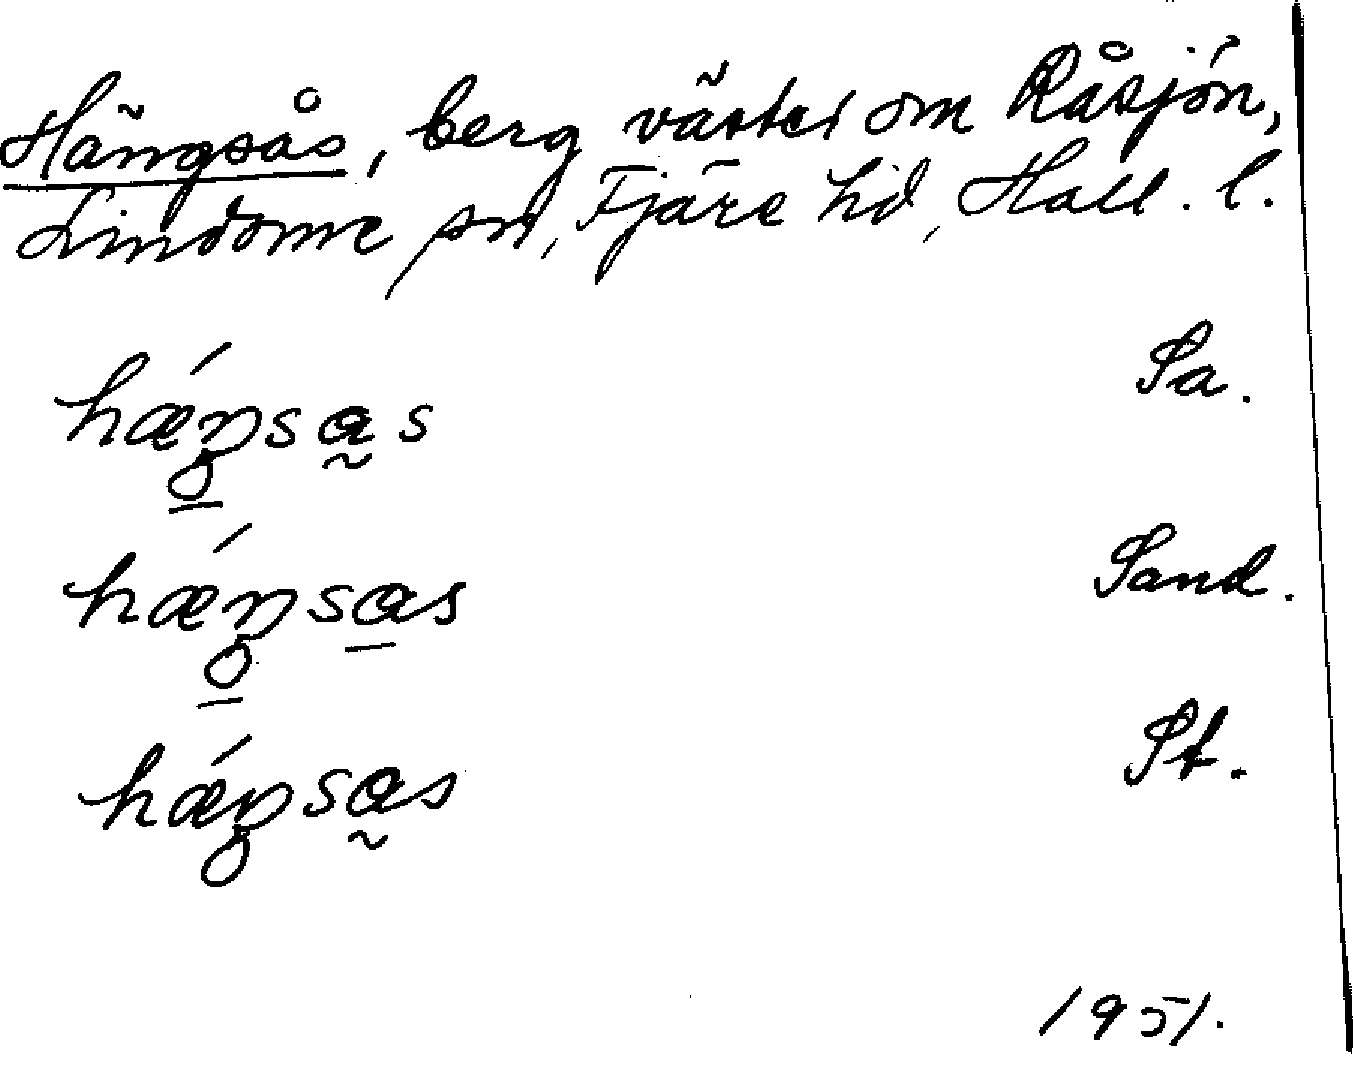 Hängsås, berg väster om Råsjön,
Lindome sn, Fjäre hd, Hall. l.
hǽŋsa̰s Sa.
hǽŋsa̲s Sand.
hǽŋsa̰s St.
1951.